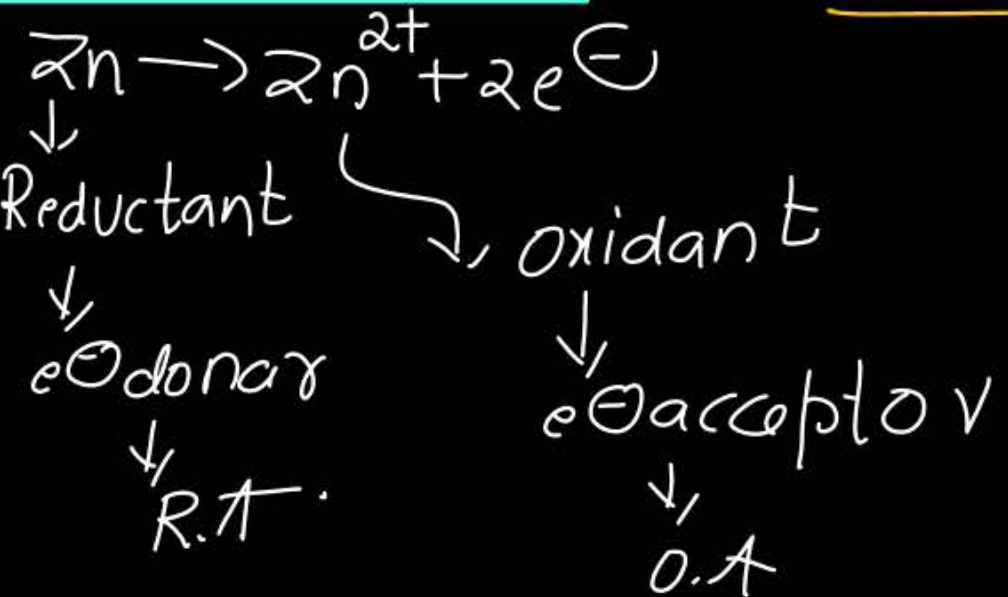 Zn → Zn²⁺ + 2e⊖
↓
Reductant
↓
e⊖donar
↓
R.A.
oxidant
↓
e⊖acceptor
↓
O.A